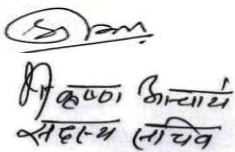 श्री कृष्ण आचार्य
सदस्य सचिव